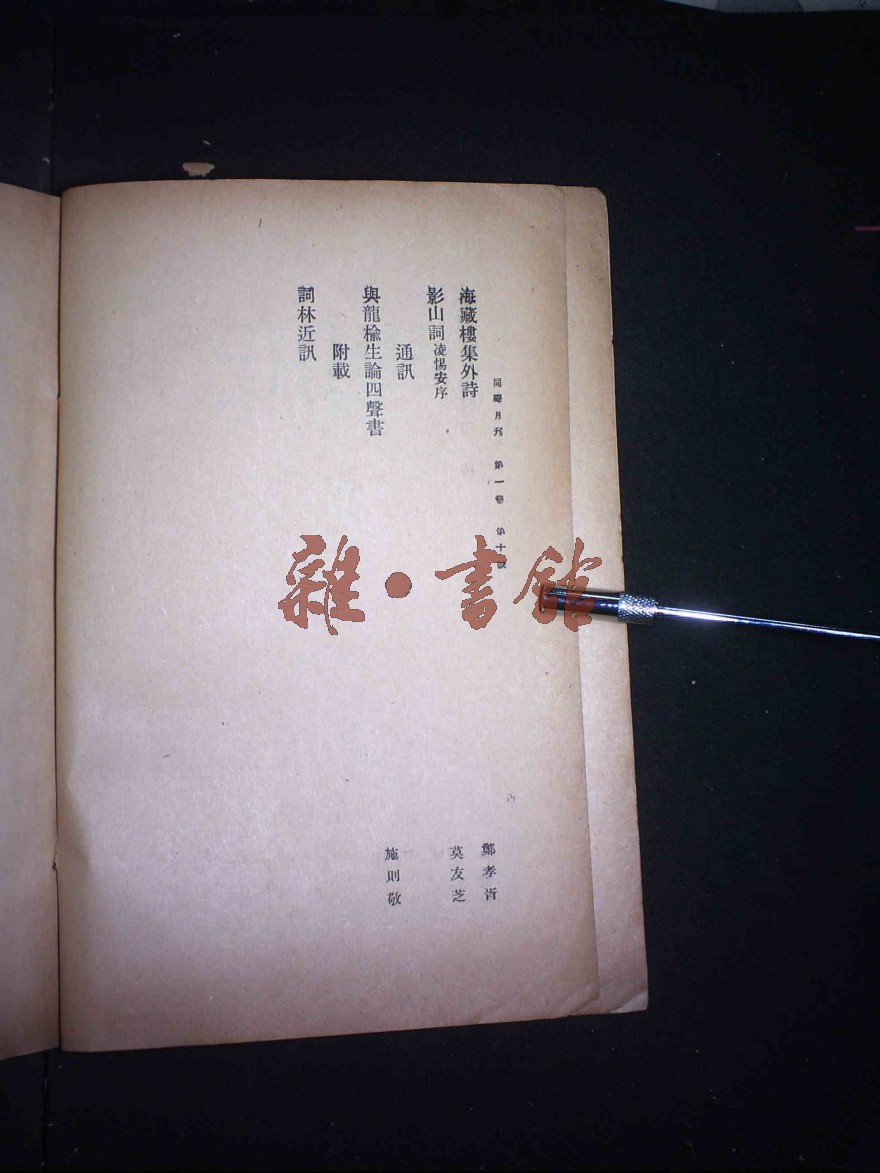 同聲月刊　第一卷　第十號
海藏樓集外詩　鄭孝胥
影山詞凌惕安序　莫友芝
通訊
與龍楡生論四聲書　施則敬
附載
詞林近訊
雜·書館